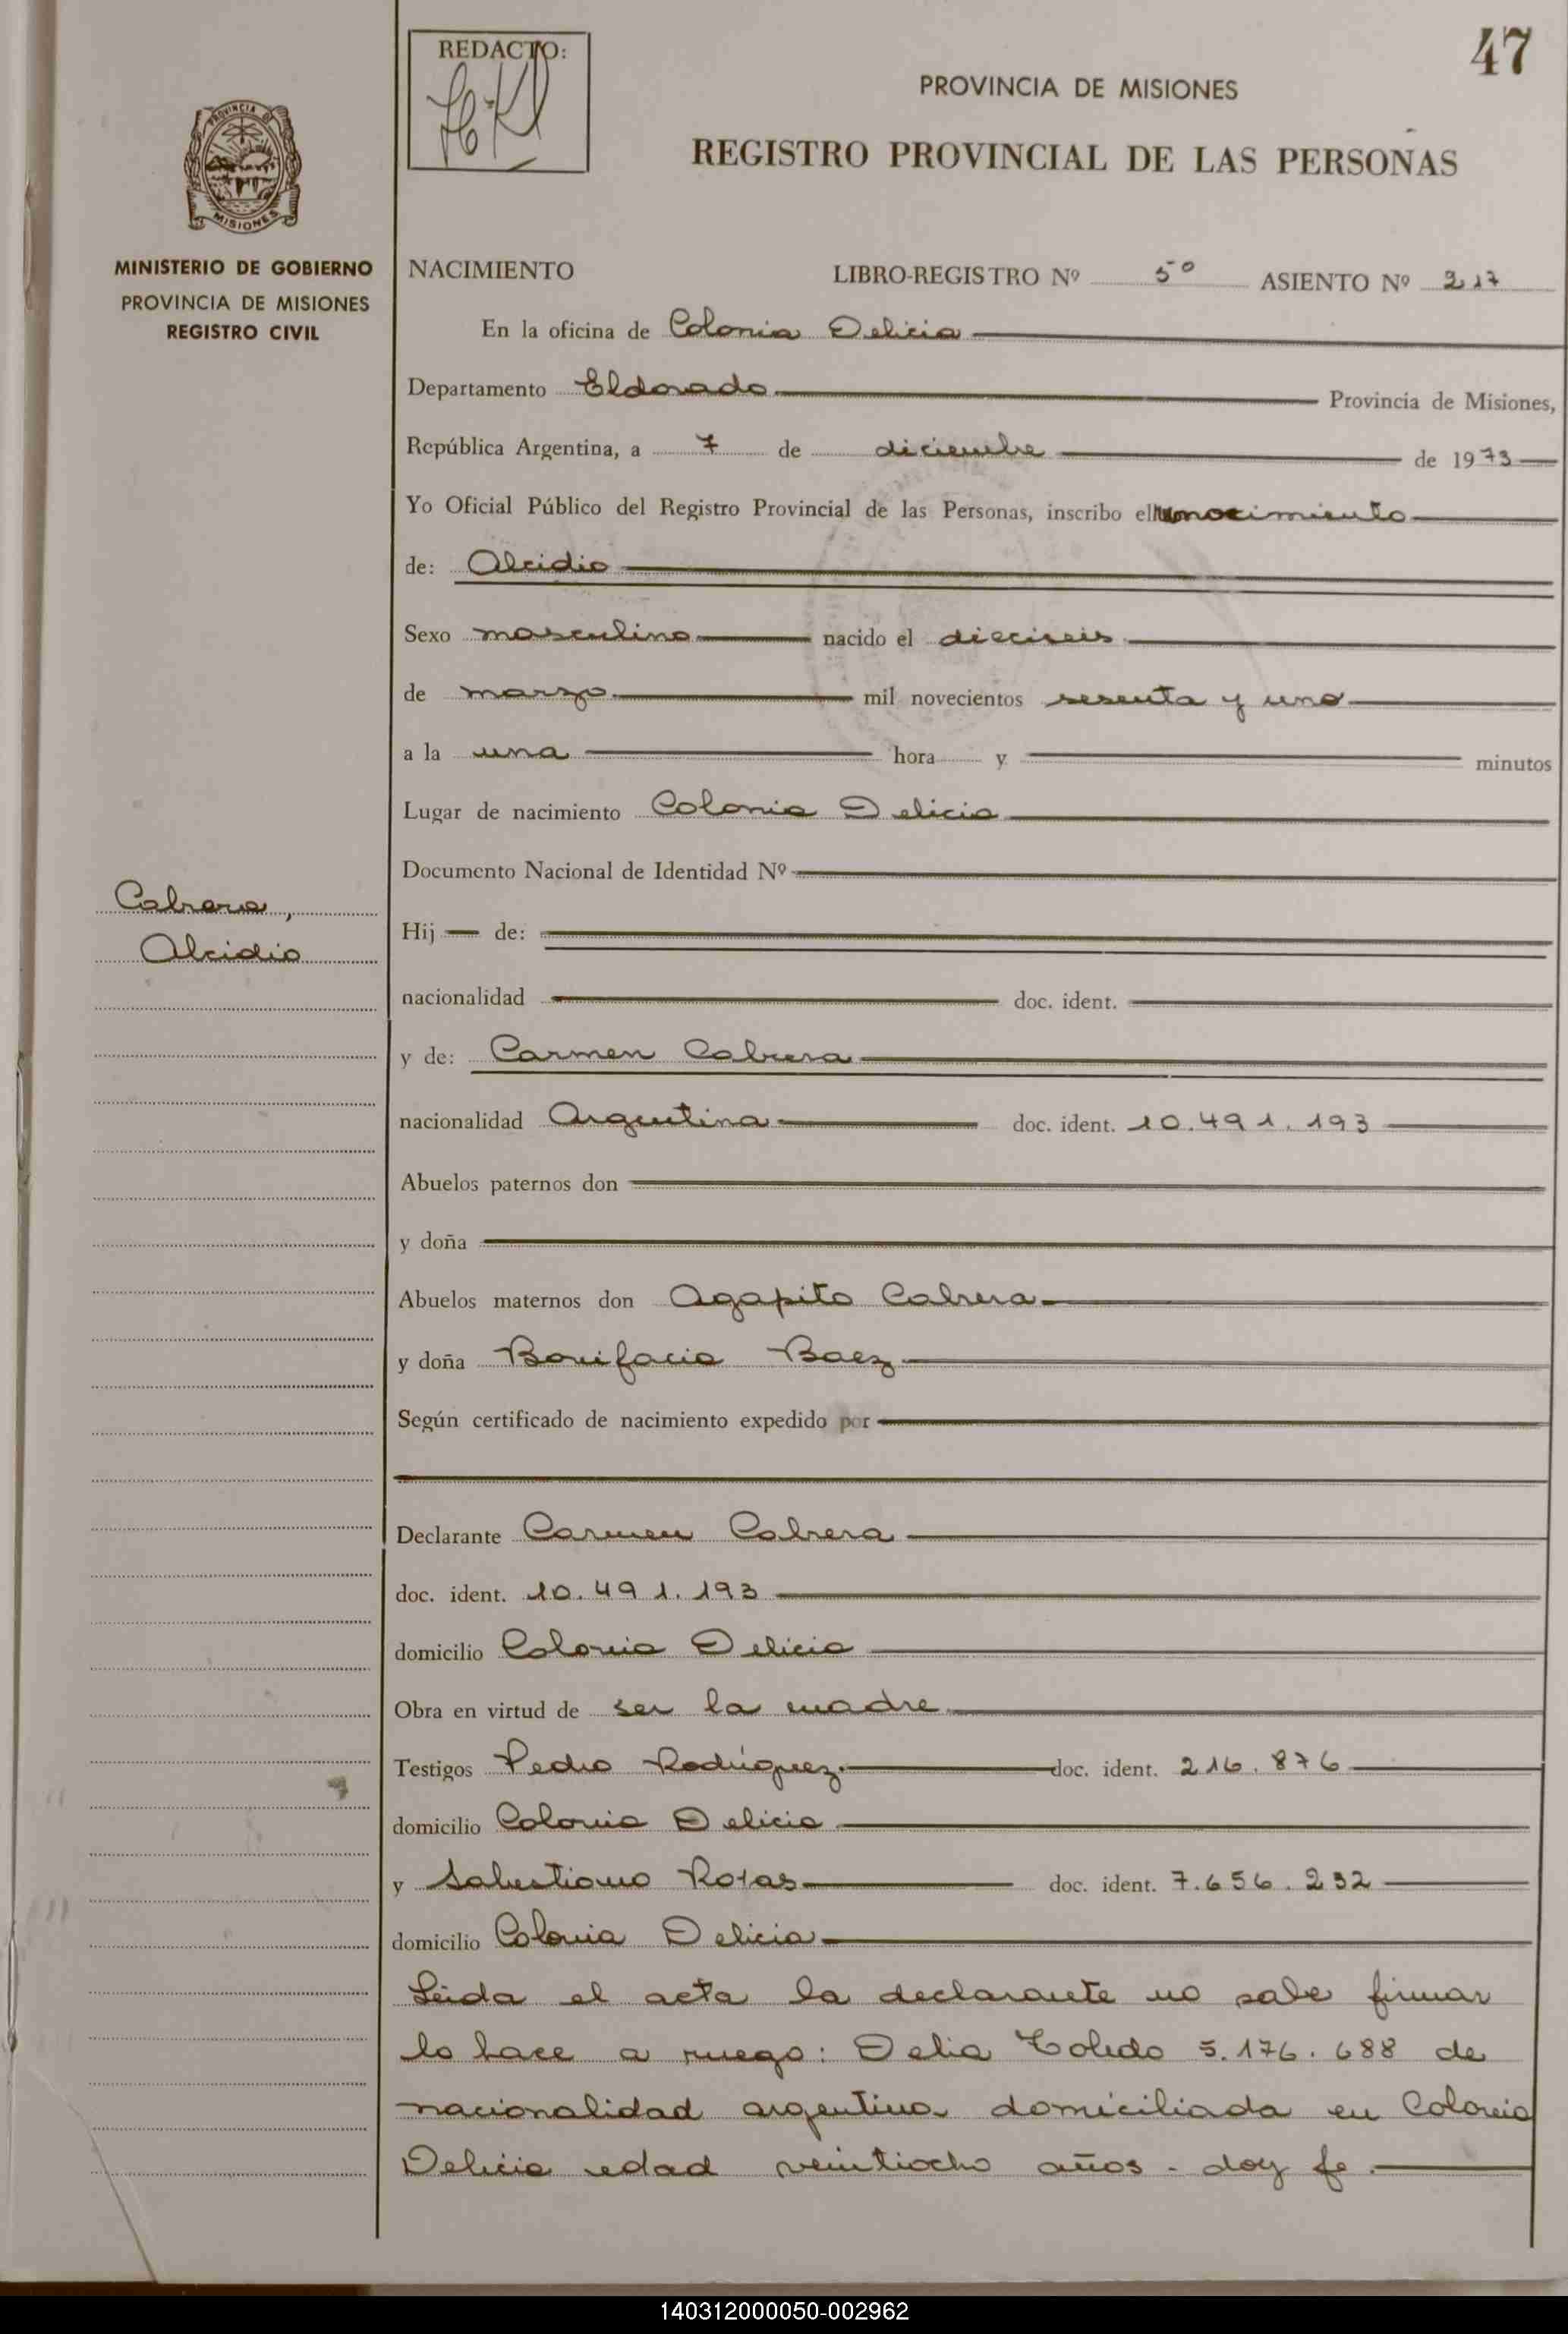 47
REDACTO:
PROVINCIA DE MISIONES
REGISTRO PROVINCIAL DE LAS PERSONAS
PROVINCIA DE
MISIONES
MINISTERIO DE GOBIERNO
PROVINCIA DE MISIONES
REGISTRO CIVIL
NACIMIENTO LIBRO-REGISTRO Nº 5º ASIENTO Nº 217
En la oficina de Colonia Delicia
Departamento Eldorado Provincia de Misiones,
República Argentina, a 7 de diciembre de 1973
Yo Oficial Público del Registro Provincial de las Personas, inscribo el
de: Alcidio
Sexo masculino nacido el dieciseis
de marzo mil novecientos sesenta y uno
a la una hora y minutos
Lugar de nacimiento Colonia Delicia
Documento Nacional de Identidad Nº
Cabrera,
Alcidio
Hij de:
nacionalidad doc. ident.
y de: Carmen Cabrera
nacionalidad Argentina doc. ident. 10.491.193
Abuelos paternos don
y doña
Abuelos maternos don Agapito Cabrera
y doña Bonifacia Baez
Según certificado de nacimiento expedido por
Declarante Carmen Cabrera
doc. ident. 10.491.193
domicilio Colonia Delicia
Obra en virtud de ser la madre
Testigos Pedro Rodriguez doc. ident. 216.876
domicilio Colonia Delicia
y Rojas doc. ident. 7.656.232
domicilio Colonia Delicia
Leida el acta la declarante no sabe firmar
lo hace a ruego: Delia Toledo 5.176.688 de
nacionalidad argentina domiciliada en Colonia
Delicia edad veintiocho años - doy fe.
140312000050-002962